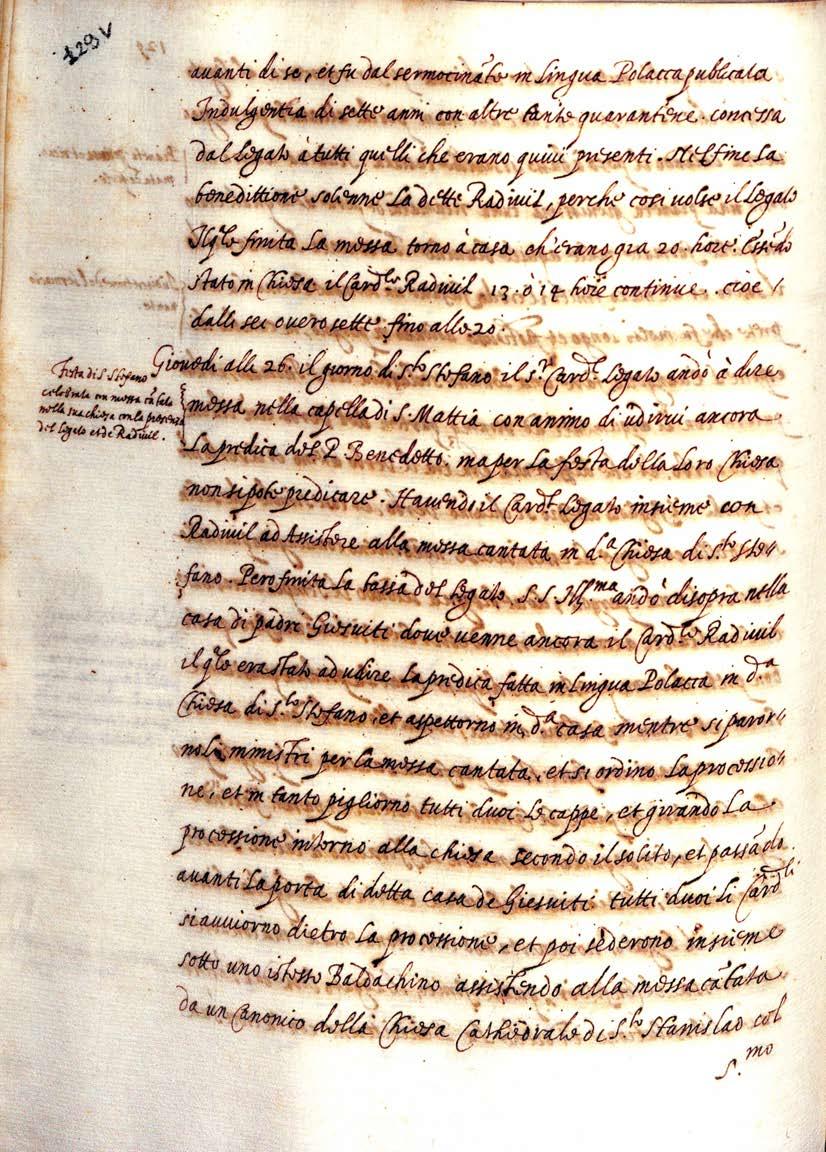 129v
avanti di se, et fu dal sermocinãte in lingua Polacca publicata
Indulgentia di sette anni con altre tante quarantene. concessa
dal Legato à tutti quelli che erano quivi presenti. Nel fine la
benedittione solenne la dette Radivil, perche cosi volse il Legato
Il q.le finita la messa torno à casa ch'erano gia 20. hore. Essẽdo
stato in Chiesa il Card.le Radivil 13. ò 14 hore continue. cioe
dalle sei overo sette fino alle 20.
Giovedi alle 26. il giorno di S.to Stefano il s.r Card.l Legato andò à dire
messa nella capella di S. Mattia con animo di udirvi ancora
la predica del P. Benedetto. ma per la festa della loro Chiesa
non si pote predicare. Havendo il Card.l Legato insieme con
Radivil ad Assistere alla messa cantata in d.a Chiesa di S.to Ste//
fano. Pero finita la bassa del Legato S. S. Ill.ma andò disopra nella
casa di padri Giesuiti dove venne ancora il Card.le Radivil
il q.le era stato ad udire la predica fatta in lingua Polacca in d.a
Chiesa di S.to Stefano, et aspettorno in d.a casa mentre si paror//
no li ministri per la messa cantata, et si ordino la processio//
ne, et in tanto pigliorno tutti duoi le cappe, et girando la
processione intorno alla chiesa secondo il solito, et passãdo
avanti la porta di detta casa de Giesuiti tutti duoi li Card.li
si avviorno dietro la processione, et poi sederono insieme
sotto uno istesso Baldachino assistendo alla messa cãtata
da un Canonico della Chiesa Cathedrale di S.to Stanislao col
S.mo
Festa di S. Stefano
celebrata con messa cãtata
nella sua chiesa con la presenza
del Legato et de Radivil.